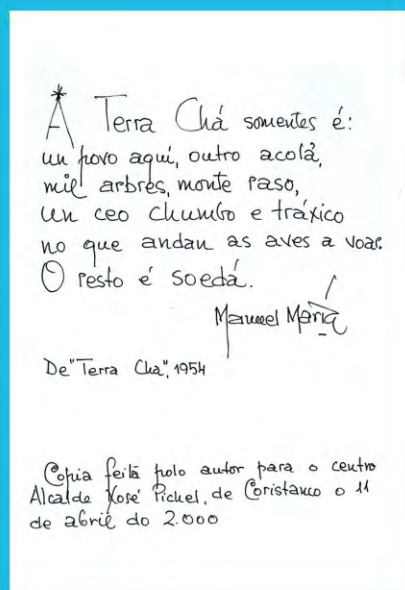 A Terra Chá somentes é:
un povo aquí, outro acolá,
mil arbres, monte raso,
un ceo chumbo e tráxico
no que andan as aves a voar.
O resto é soedá.
Manuel María
De "Terra Cha", 1954
Copia feita polo autor para o centro
Alcalde Xosé Pichel, de Coristanco o 11
de abril do 2.000